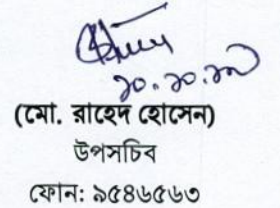 ১০.১০.১৯
(মো. রাহেদ হোসেন)
উপসচিব
ফোন: ৯৫৪৬৫৬৩